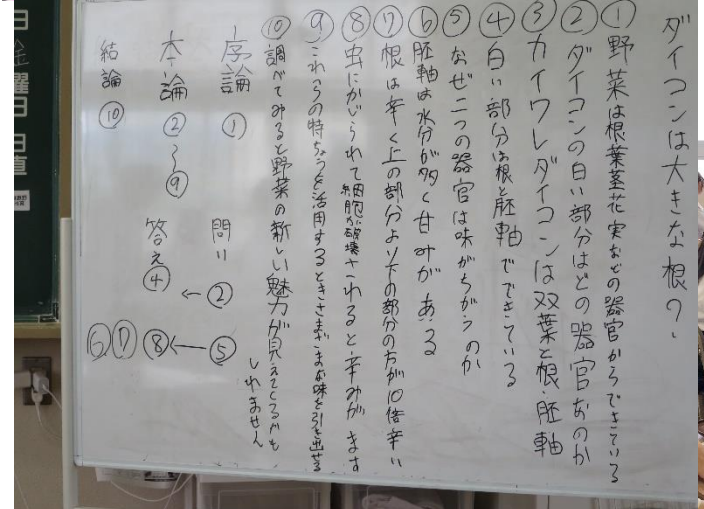 ダイコンは大きな根?
①野菜は根葉茎花実などの器官からできている
②ダイコンの白い部分はどの器官なのか
③カイワレダイコンは双葉と根・胚軸
④白い部分は根と胚軸でできている
⑤なぜ二つの器官は味がちがうのか
⑥胚軸は水分が多く甘みがある
⑦根は辛く上の部分より下の部分の方が10倍辛い
⑧虫にかじられて細胞が破壊されると辛みがます
⑨これらの特ちょうを活用するとさまざまな味を引き出せる
⑩調べてみると野菜の新しい魅力が見えてくるかも
しれません
序論 ① 問い ② ⑤
本論 ②〜⑨ 答え ④ ← ⑧ ← ⑥⑦
結論 ⑩
日
金
曜
日
日
直